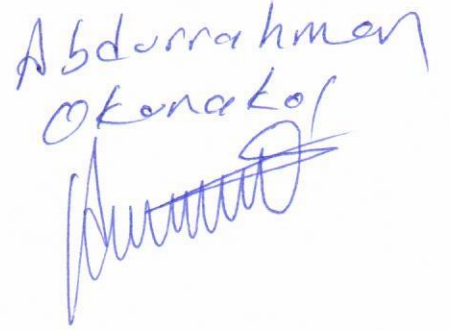 Abdurrahman
Okunakol